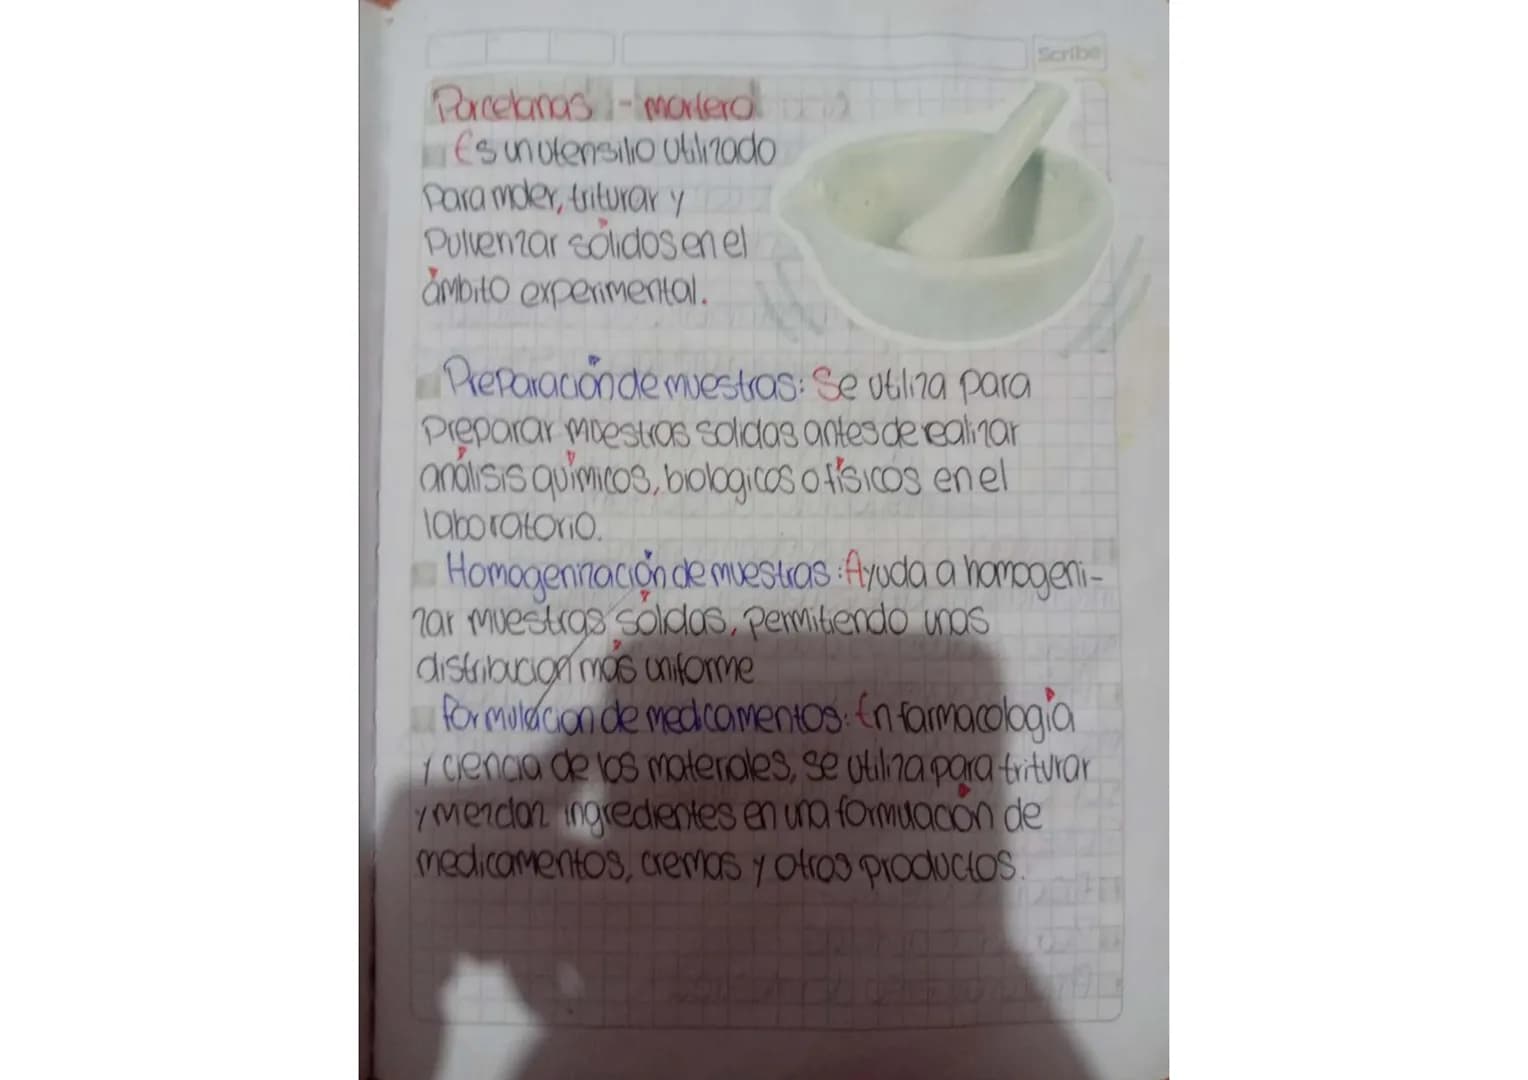 Scribe
Porcelanas - mortero
Es un utensilio utilizado
para moler, triturar y
Pulverizar sólidos en el
ámbito experimental.
Preparación de muestras: Se utiliza para
preparar muestras solidas antes de realizar
análisis químicos, biologicos o físicos en el
laboratorio.
Homogenización de muestras: Ayuda a homogeni-
zar muestras sólidas, permitiendo unas
distribucion más uniforme
formulacion de medicamentos: En farmacología
y ciencia de los materiales, se utiliza para triturar
y mezclar ingredientes en una formuación de
medicamentos, cremas y otros productos.